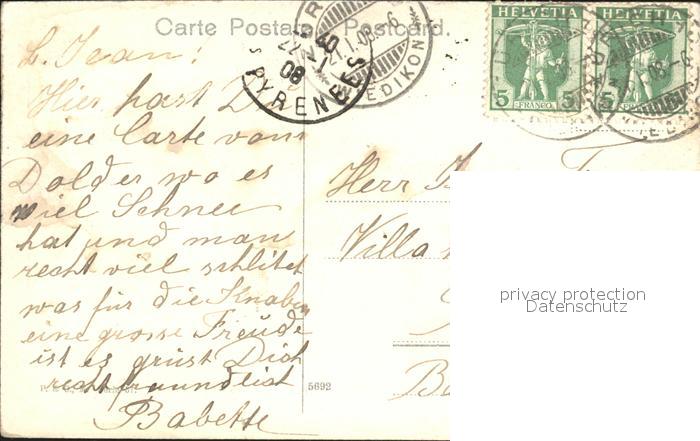 Carte Postale Postcard.
HELVETIA HELVETIA
5 FRANCO 5 5 FRANCO
22 08
PYRENEES
EDIKON
L. Jean!
Hier hast D
eine Carte vom
Dolder wo es
viel Schnee
hat und man
recht viel schlitet
was für die Knaben
eine grosse Freude
ist es grüst Dich
recht freundlich
Babette
Herr
Villa
5692
privacy protection
Datenschutz